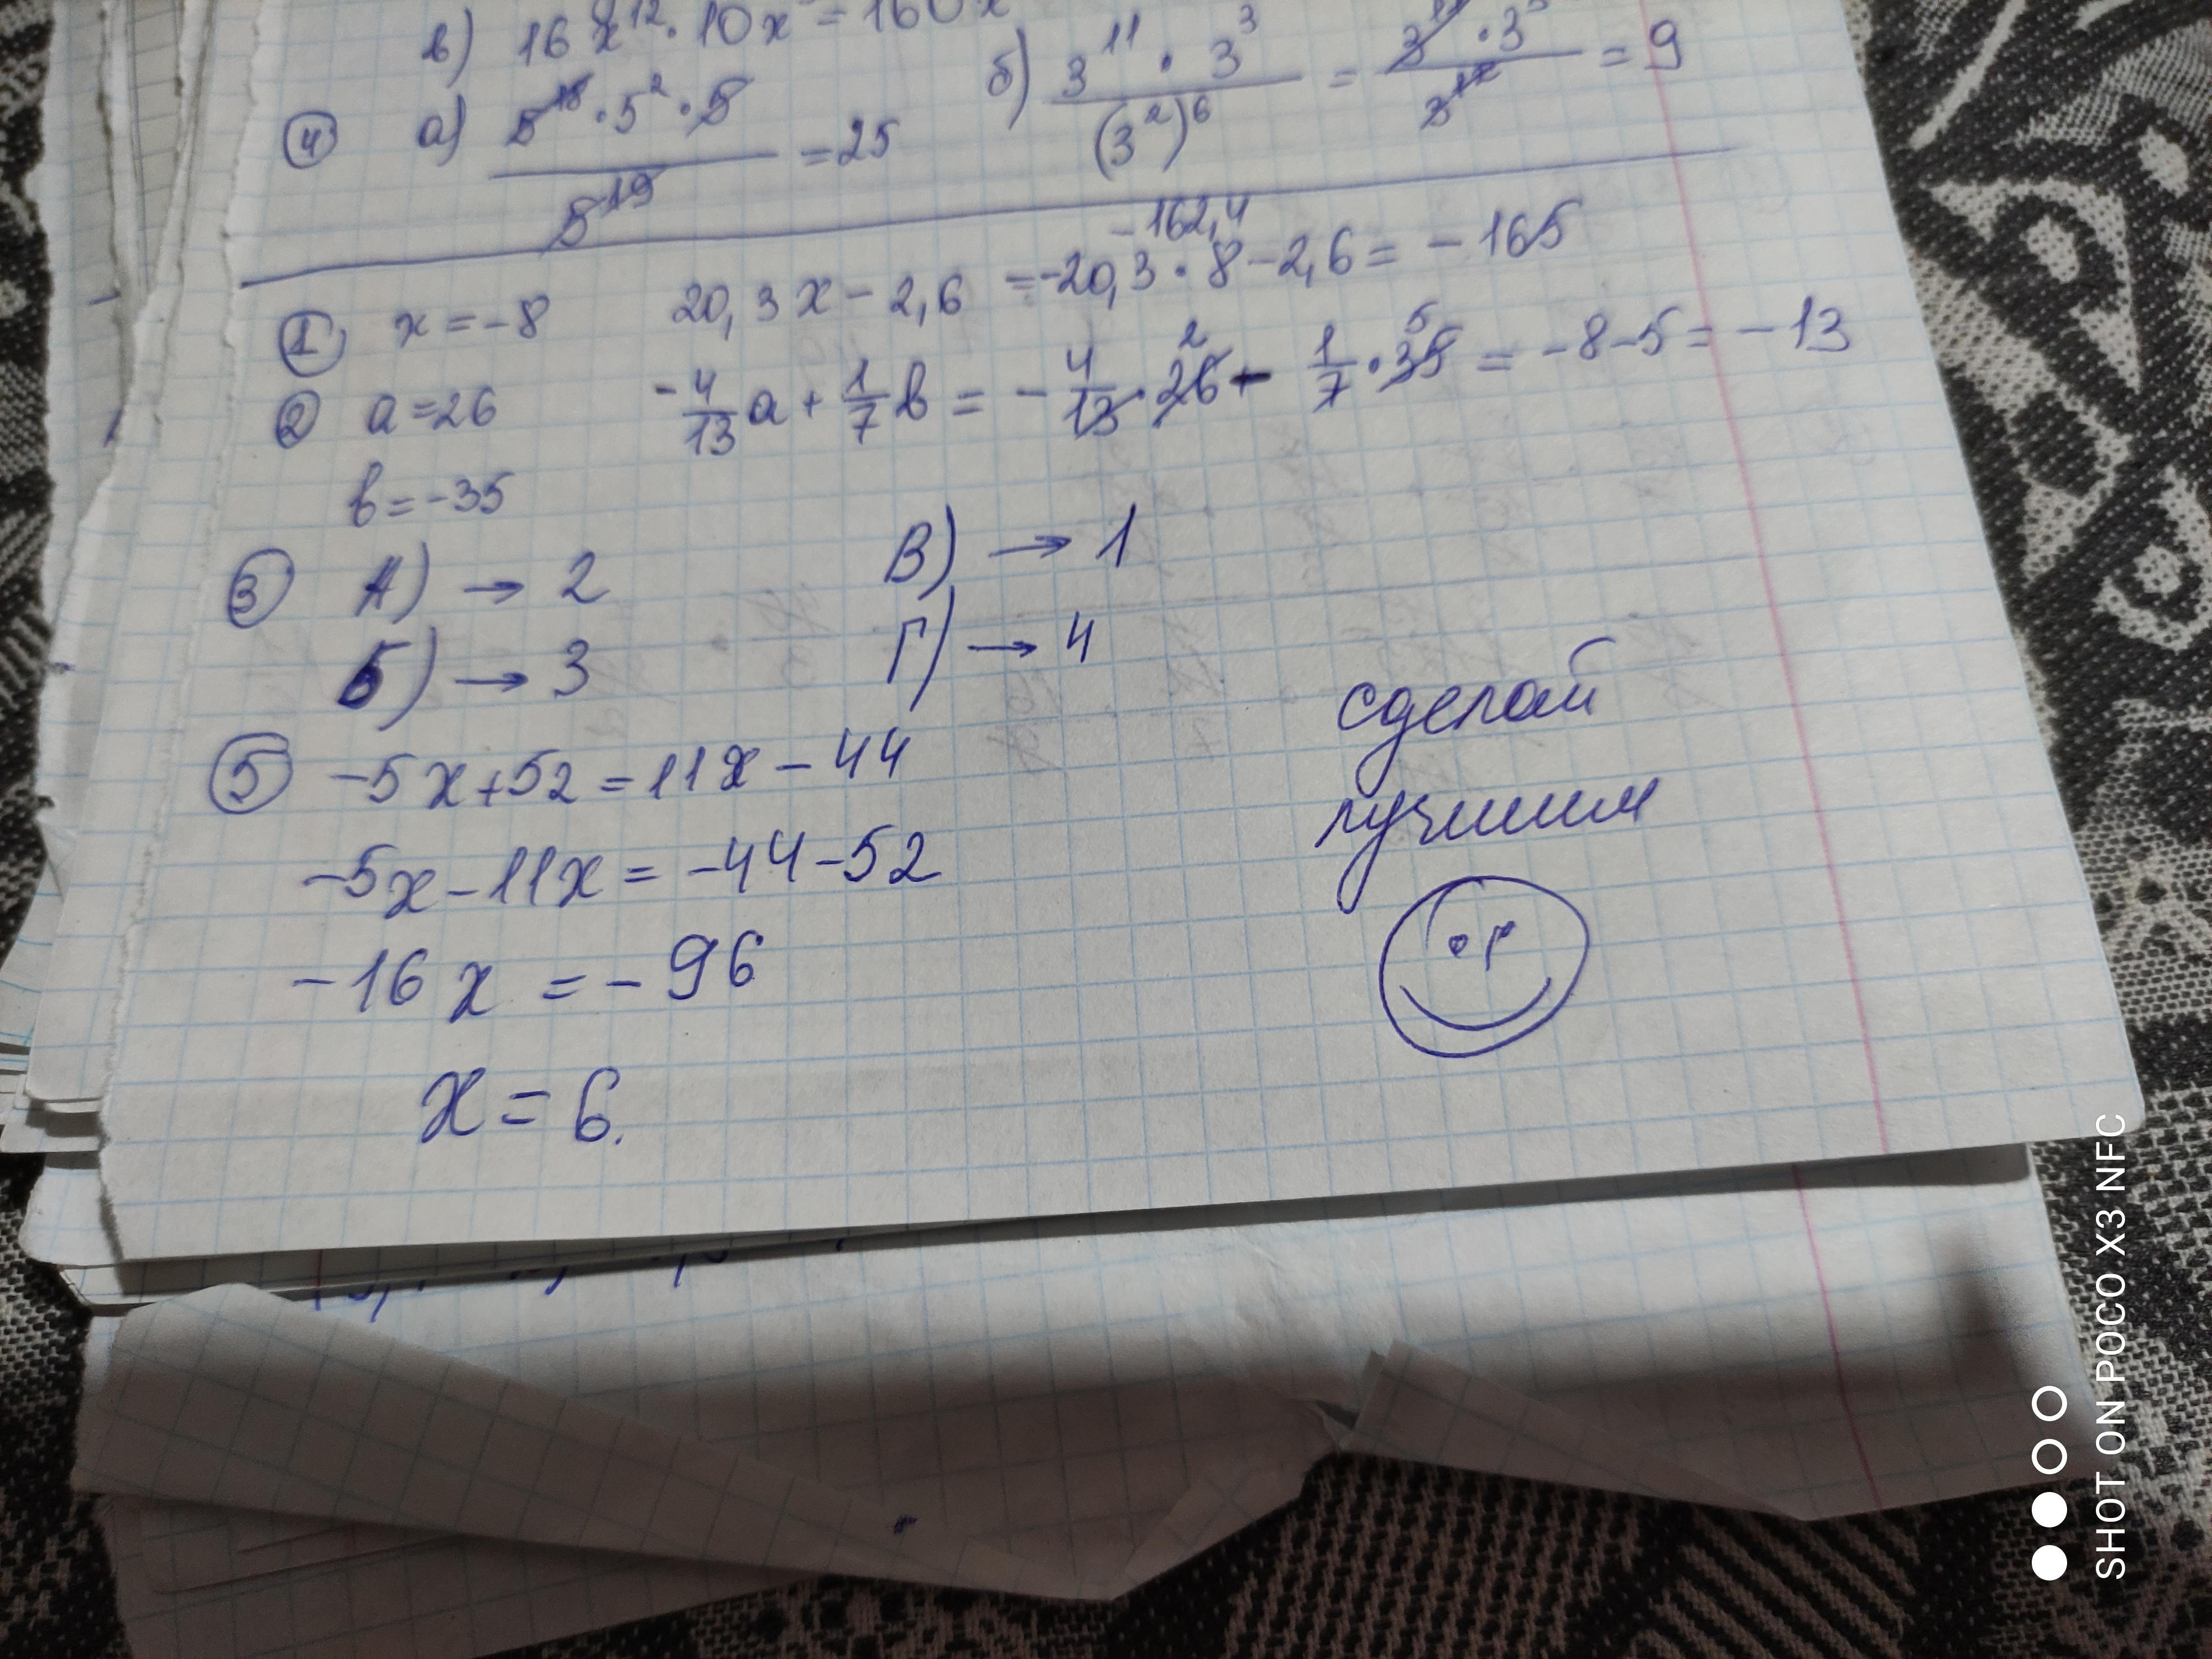 в) 16x¹²·10x = 160x
④ а) 5¹⁸·5²·5 / 5¹⁹ = 25 б) 3¹¹·3³ / (3²)⁶ = ·3³ / 3¹² = 9
-162,4
① x = -8 20,3x - 2,6 = -20,3·8 - 2,6 = -165
② a = 26 -4/13 a + 1/7 b = -4/13·26 - 1/7·35 = -8-5 = -13
2 5
b = -35
③ А) → 2 В) → 1
Б) → 3 Г) → 4
⑤ -5x+52 = 11x - 44
-5x - 11x = -44-52
-16x = -96
x = 6.
сделай
лучшим
SHOT ON POCO X3 NFC